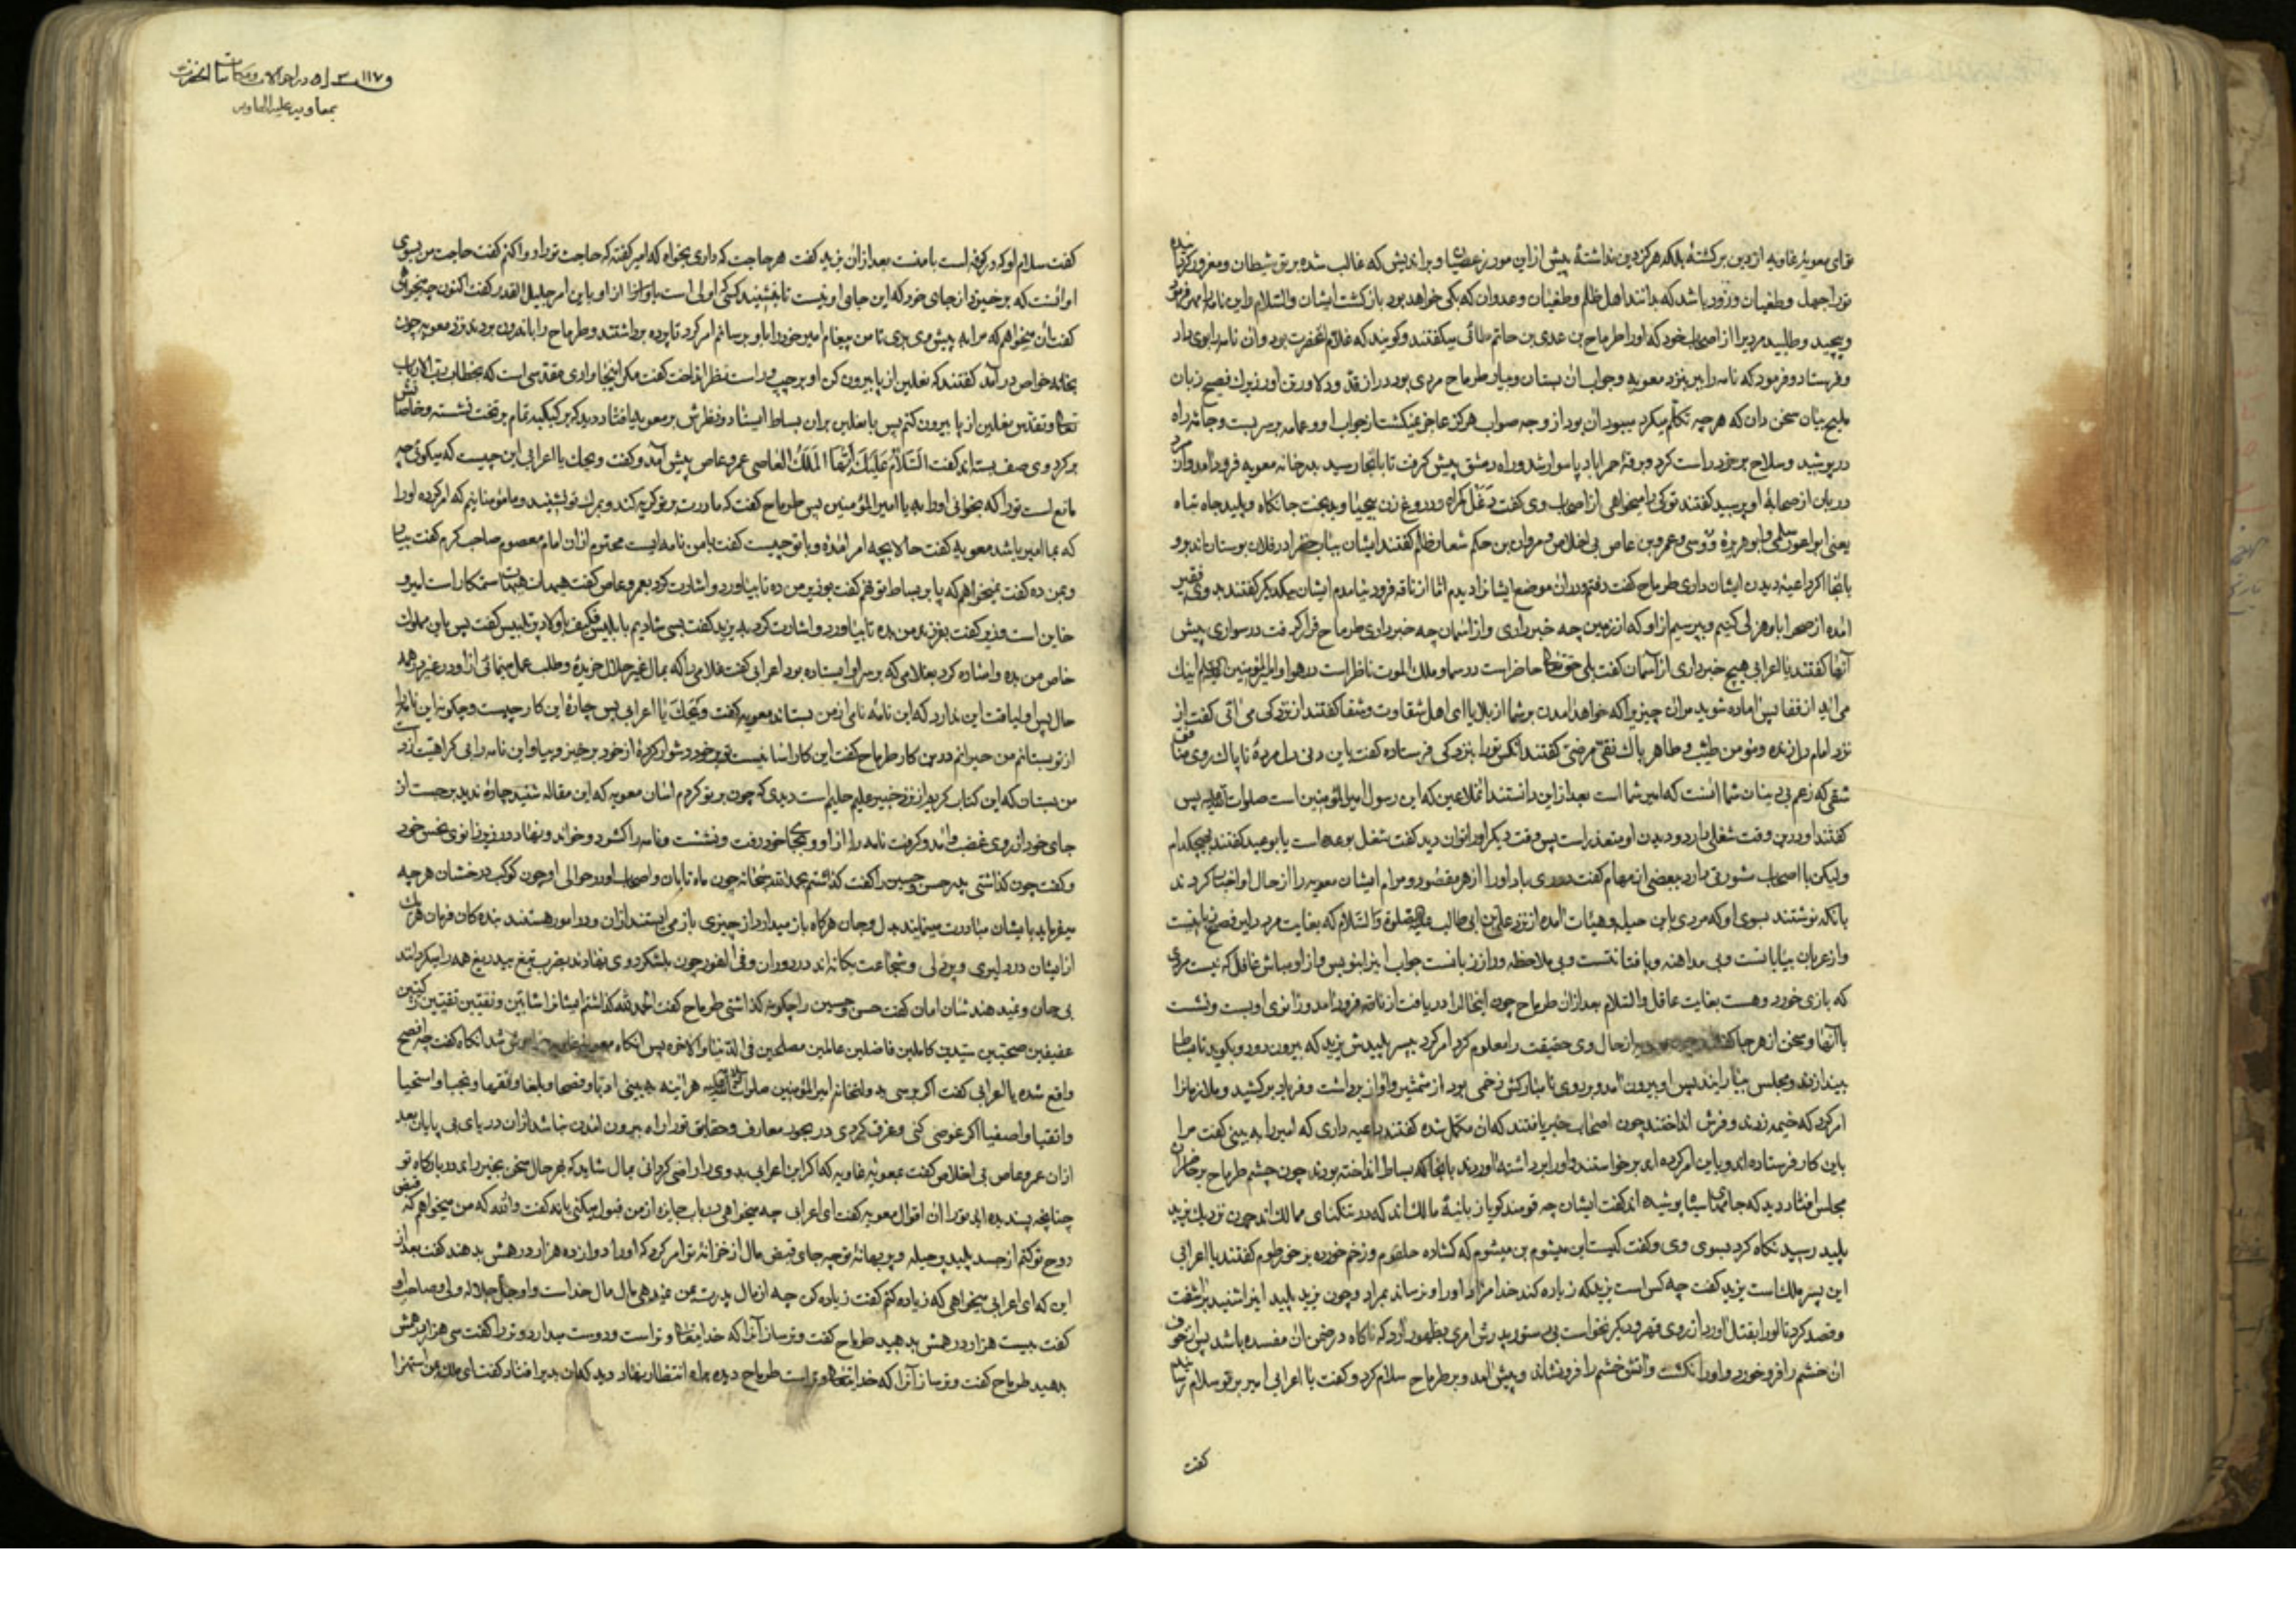 توای معویهٔ غاویه از دین برگشتهٔ بلکه هرگز دین نداشتهٔ پیش از این مورز عصیان و براندیش که غالب شده بر تو شیطان و مغرور کرد
تورا جهل و طغیان وزود باشد که بدانند اهل ظلم و طغیان و عدوان که بکی خواهد بود بازگشت ایشان والسلام و این نامه را
وپیچید وطلبید مردیرا از اصحاب خود که اورا طرماح بن عدی بن حاتم طائی میگفتند وگویند که غلام آنحضرت بود و آن نامه را بوی داد
وفرستاد وفرمود که نامه را ببر بنزد معویه وجواب آن بستان وبیار طرماح مردی بود دراز قد ودلاور وزیرک فصیح زبان
ملیح بیان سخن دان که هر چه تکلم میکرد از وجه صواب هرگز عاجز نمیگشت از جواب او وعمامه بر سر بست وجامهٔ راه
درپوشید وسلاح بر خود راست کرد وبر سوار شد وراه دمشق پیش گرفت تا بآنجا رسید بدر خانه معویه فرود آمد
دربان از صحابهٔ او پرسید گفتند تو کی را میخواهی از اصحاب وی گفت گمراه ودروغ زن بیحیا وبدبخت جانکاه وپلید جاه تباه
یعنی ابو اعور سلمی وابو هریرهٔ دوسی وعمرو بن عاص بی اخلاص ومروان بن حکم شعار ظالم گفتند ایشان در فلان بوستان اند برو
بآنجا اگر داعیهٔ دیدن ایشان داری طرماح گفت رفتم در آن موضع ایشانرا دیدم اما از ناقه فرود نیامدم ایشان بیکدیگر گفتند بدوی فقیر
آمده از صحرا با او هزلی کنیم وبپرسیم از او که از زمین چه خبر داری واز آسمان چه خبر داری طرماح در سواری پیش
آنها گفتند یا اعرابی هیچ خبر داری از آسمان گفت بلی حق تعالی حاضر است در سما وملک الموت ناظر است در هوا وامیر المؤمنین اینک
می آید از قفا پس آماده شوید مر آن چیزیرا که خواهد آمدن بر شما از بلا یا ای اهل شقاوت وشقا گفتند از نزد کی می آئی گفت از
نزد امام دل زنده ومؤمن طیب وطاهر پاک نقی مرضی گفتند آنکس تورا بنزد کی فرستاده گفت باین دنی دل مردهٔ ناپاک روی
شقی که زعم بی دینان شما آنست که امیر شما است بعد از این دانستند آنملاعین که این رسول امیر المؤمنین است صلوات الله علیه پس
گفتند او درین وقت شغلی دارد ودیدن او متعذر است پس وقت دیگر اورا توان دید گفت شغل بوعدها است یا بوعید گفتند بهیچکدام
ولیکن با اصحاب مشورتی دارد در بعضی از مهام گفت دوری باد اورا از هر مقصود ومرام ایشان معویه را از حال او اخبار کردند
بآنکه نوشتند بسوی او که مردی باین حیله وهیئات آمده از نزد علی بن ابی طالب علیه الصلوة والسلام که بغایت مرد دراین فصیح زبانست
واز عربان بیابانست وبی مداهنه وبا فتانتست وبی ملاحظه ودراز زبانست جواب این را بنویس واز او مباش غافل که نیست مردی
که بازی خورد وهست بغایت عاقل والسلام بعد از آن طرماح چون اینحال را دریافت از ناقه فرود آمد وزانوی او بست ونشست
با آنها وسخن از هر جا از حال وی حقیقت را معلوم کرد امر کرد بپسر پلیدش یزید که بیرون رود وبگوید تا بساط
بیندازند ومجلس بیارایند پس او بیرون آمد وبر روی نامبارکش زخمی بود از شمشیر وآواز برداشت وفریاد برکشید وملازمانرا
امر کرد که خیمه زدند وفرش انداختند چون اصحاب خبر یافتند که آن مکمل شده گفتند داعیه داری که امیر را به بینی گفت مرا
باین کار فرستاده اند وباین امر کرده اند برخواستند واورا برداشته آوردند بآنجا که بساط انداخته بودند چون چشم طرماح بر حاضران
مجلس افتاد دید که جامهای سیاه پوشیده اند گفت ایشان چه قومند گویا زبانیهٔ مالک اند که در تنگنای ممالک اند چون نزدیک یزید
پلید رسید نگاه کرد بسوی وی وگفت کیست این میشوم بن میشوم که گشاده حلقوم وزخم خورده بر خرطوم گفتند یا اعرابی
این پسر ملک است یزید گفت چه کس است یزید که زیاده نکند خدا مراد اورا ونرساند بمراد وچون یزید پلید اینرا شنید برآشفت
وقصد کرد تا اورا بقتل آورد از روی قهر ودیگر نخواست بی دستور پدرش امری بظهور آورد که ناگاه در ضمن آن مفسده باشد پس از خوف
آن خشم را فرو خورد واورا نکشت وآتش خشم را فرو نشاند وپیش آمد وبر طرماح سلام کرد وگفت یا اعرابی امیر بر تو سلام رسانیده
گفت
در احوالات ومکاتبات آنحضرت
بمعاویه علیه الهاویه
گفت سلام او گرفته است با منست بعد از آن یزید گفت هر حاجت که داری بخواه که امیر گفته که حاجت تورا روا کنم گفت حاجت من بسوی
او آنست که برخیزد از جای خود که این جای او نیست تا بنشیند کسی که اولی است از او باین امر جلیل القدر گفت اکنون چه میخواهی
گفت آن میخواهم که مرا به پیش وی بری تا من پیغام امیر خود را باو برسانم امر کرد تا پرده برداشتند وطرماح را باندرون بردند نزد معویه چون
بخانه خواص درآمد گفتند که نعلین از پا بیرون کن او بر چپ وراست نظر انداخت گفت مگر اینجا وادی مقدسی است که بخطاب رب الارباب
نعلین از پا بیرون کنم پس با نعلین بر آن بساط ایستاد ونظرش بر معویه افتاد دید که بر تخت نشسته وخاصان
برگرد وی صف بسته اند گفت السلام علیک ایها الملک العاصی عمرو عاص پیش آمد وگفت ویحک یا اعرابی این چیست که میگوئی چه
مانع است تورا که بخوانی اورا به یا امیر المؤمنین پس طرماح گفت که مادرت بر تو گریه کند وبمرگ تو نشیند وما مؤمنانیم که امر کرده اورا
که بما امیر باشد معویه گفت حالا بچه امر آمدهٔ وبا تو چیست گفت با من نامه ایست محترم از آن امام معصوم صاحب کرم گفت بیار
وبمن ده گفت نمیخواهم که پا بر بساط تو نهم گفت بوزیر من ده تا بیاورد واشارت کرد بعمرو عاص گفت هیهات هیهات ستمکار است امیر و
خاین است وزیر گفت بفرزند من بده تا بیاورد واشارت کرد به یزید گفت بسی شاد نیم با ابلیس فکیف باولاد پر تلبیس گفت پس باین مملوک
خاص من بده واشاره کرد بغلامی که بر سر او ایستاده بود اعرابی گفت غلامی را که بمال غیر حلال خریدهٔ وطلب عمل مینمائی از او در غیر
حال پس او لیاقت این ندارد که این نامهٔ نامی از من بستاند معویه گفت ویحک یا اعرابی پس چارهٔ این کار چیست وچگونه این نامه را
از تو بستانم من حیرانم در من کار طرماح گفت این کار آسانیست تو بر خود دشوار کردهٔ از خود برخیز وبیا واین نامه را بی کراهیت از دست
من بستان که این کتاب کریم از نزد خبیر علیم حلیم است دیدی که چون بر تو کردم آسان معویه که این مقاله شنید چارهٔ ندید برجست از
جای خود از روی غضب وآمد وگرفت نامه را از او وبجای خود رفت ونشست ونامه را گشود وخواند ونهاد در زیر زانوی نجس خود
وگفت چون گذاشتی پدر حسن وحسین را گفت گذاشتم بحمد الله بخانه چون ماه تابان واصحاب او در حوالی او چون کوکب درخشان هر چه
میفرماید بایشان مبادرت مینمایند بدل وجان هرگاه باز میدارد از چیزی باز می ایستند از آن ودر امور هستند بنده کان فرمان هریک
از ایشان در دلیری وپردلی وشجاعت یگانه اند در دوران وفی الفور چون بلشکر دوی نهادند بضرب تیغ بیدریغ همه را میگردانند
بی جان ونمیدهندشان امان گفت حسن وحسین را چگونه گذاشتی طرماح گفت الحمد لله گذاشتم ایشانرا شابین ونقیین تقیین زکیین
عفیفین صحیحین سیدین کاملین فاضلین عالمین مصلحین فی الدنیا والآخره پس آنگاه معویه شد آنگاه گفت چه فصیح
واقع شده یا اعرابی گفت اگر برسی بدولتخانه امیر المؤمنین صلوات الله علیه هر آئینه به بینی ادبا وفصحا وبلغا وفقها ونجبا واسخیا
واتقیا واصفیا اگر غوصی کنی وغرق گردی در بحور معارف وحقایق تورا راه بیرون آمدن نباشد از آن دریای بی پایان بعد
از آن عمرو عاص بی اخلاص گفت بمعویهٔ غاویه که اگر این اعرابی بدوی را راضی گردانی بمال شاید که بهر حال سخن بخیر راند در بارگاه تو
چنانچه پسندیده آید تورا آن اقوال معویه گفت ای اعرابی چه میخواهی در باب جایزه از من قبول میکنی یا نه گفت والله که من میخواهم که قبض
روح تو کنم از جسد پلید وحیله وپر بهانهٔ تو چه جای قبض مال از خزانهٔ تو امر کرد که اورا دوازده هزار درهمش بدهند گفت بعد از
این که ای اعرابی میخواهی که زیاده کنم گفت زیاده کن چه از مال پدرت بمن نمیدهی مال مال خداست واو جل جلاله ولی وصاحب او
گفت بیست هزار درهمش بدهید طرماح گفت وتر ساز آنرا که خدایتعالی وتر است ودوست میدارد وتر را گفت سی هزار درهمش
بدهید طرماح گفت وتر ساز آنرا که خدایتعالی وتر است طرماح دیده براه انتظار نهاد دید که آن بدیر افتاد گفت ای ملک بمن استهزا